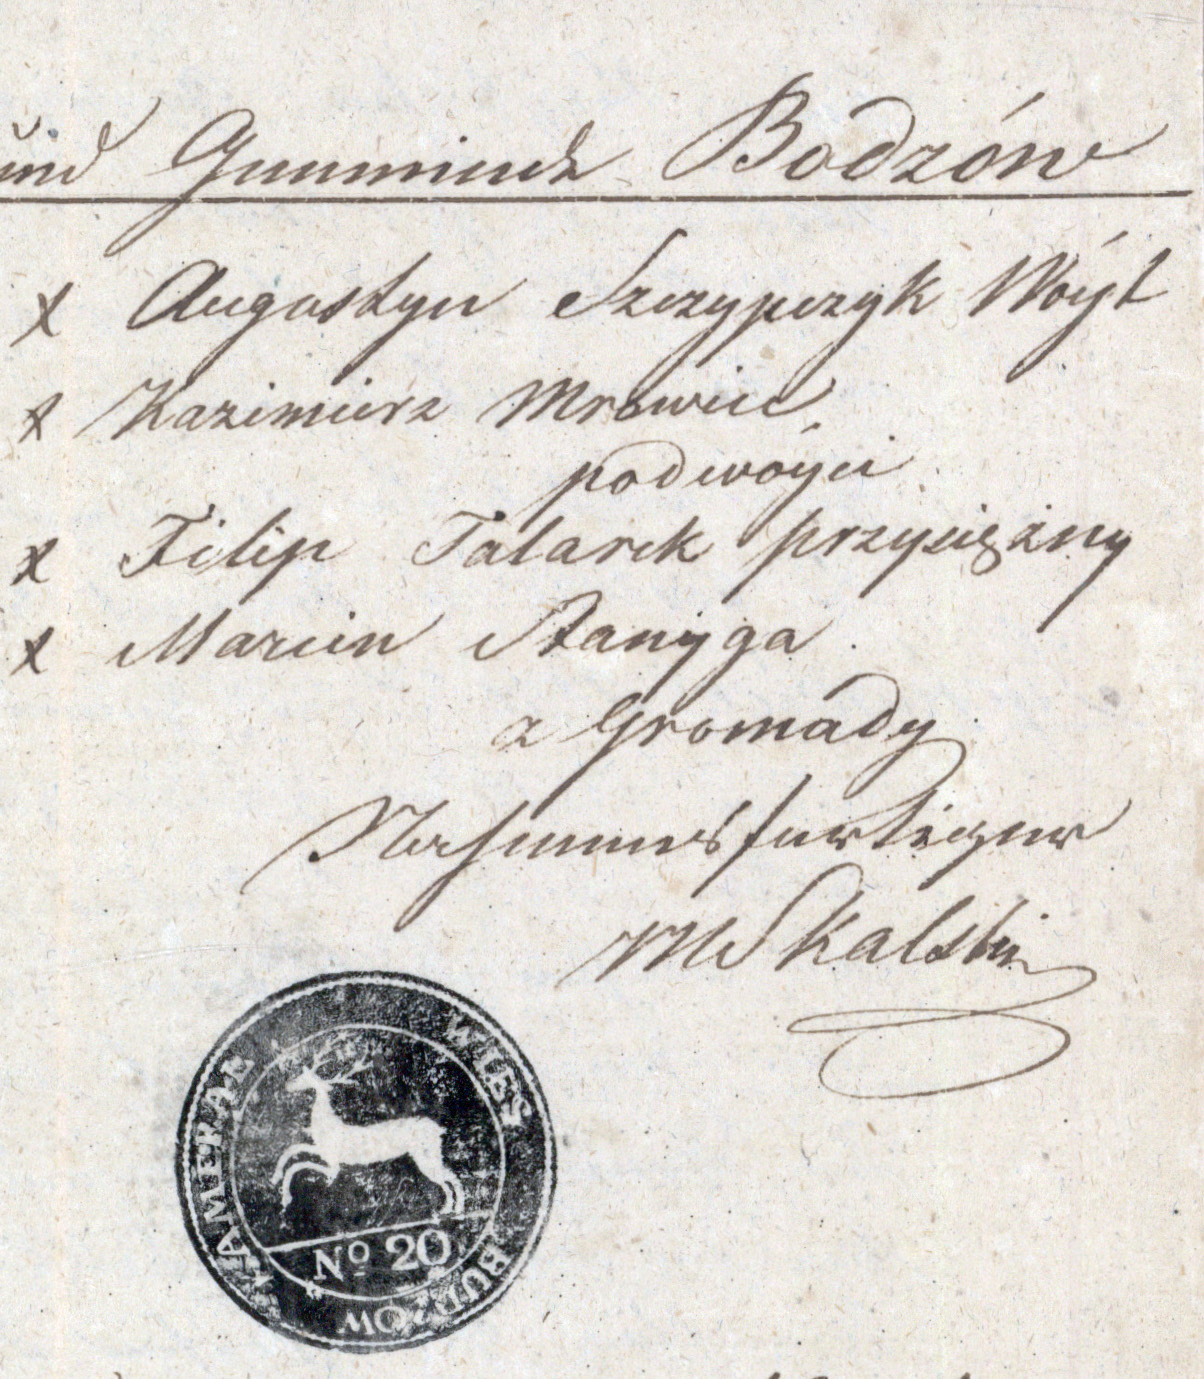 und Gemeinde Bodzów
x Augustyn Szczypczyk Wóyt
x Kazimierz Mrowiec
podwóyci
x Filip Talarek przysiężny
x Marcin Stanyga
z Gromady
Nahmensfertiger
Skalski
KAMERAL WIES BUDZOW
No 20